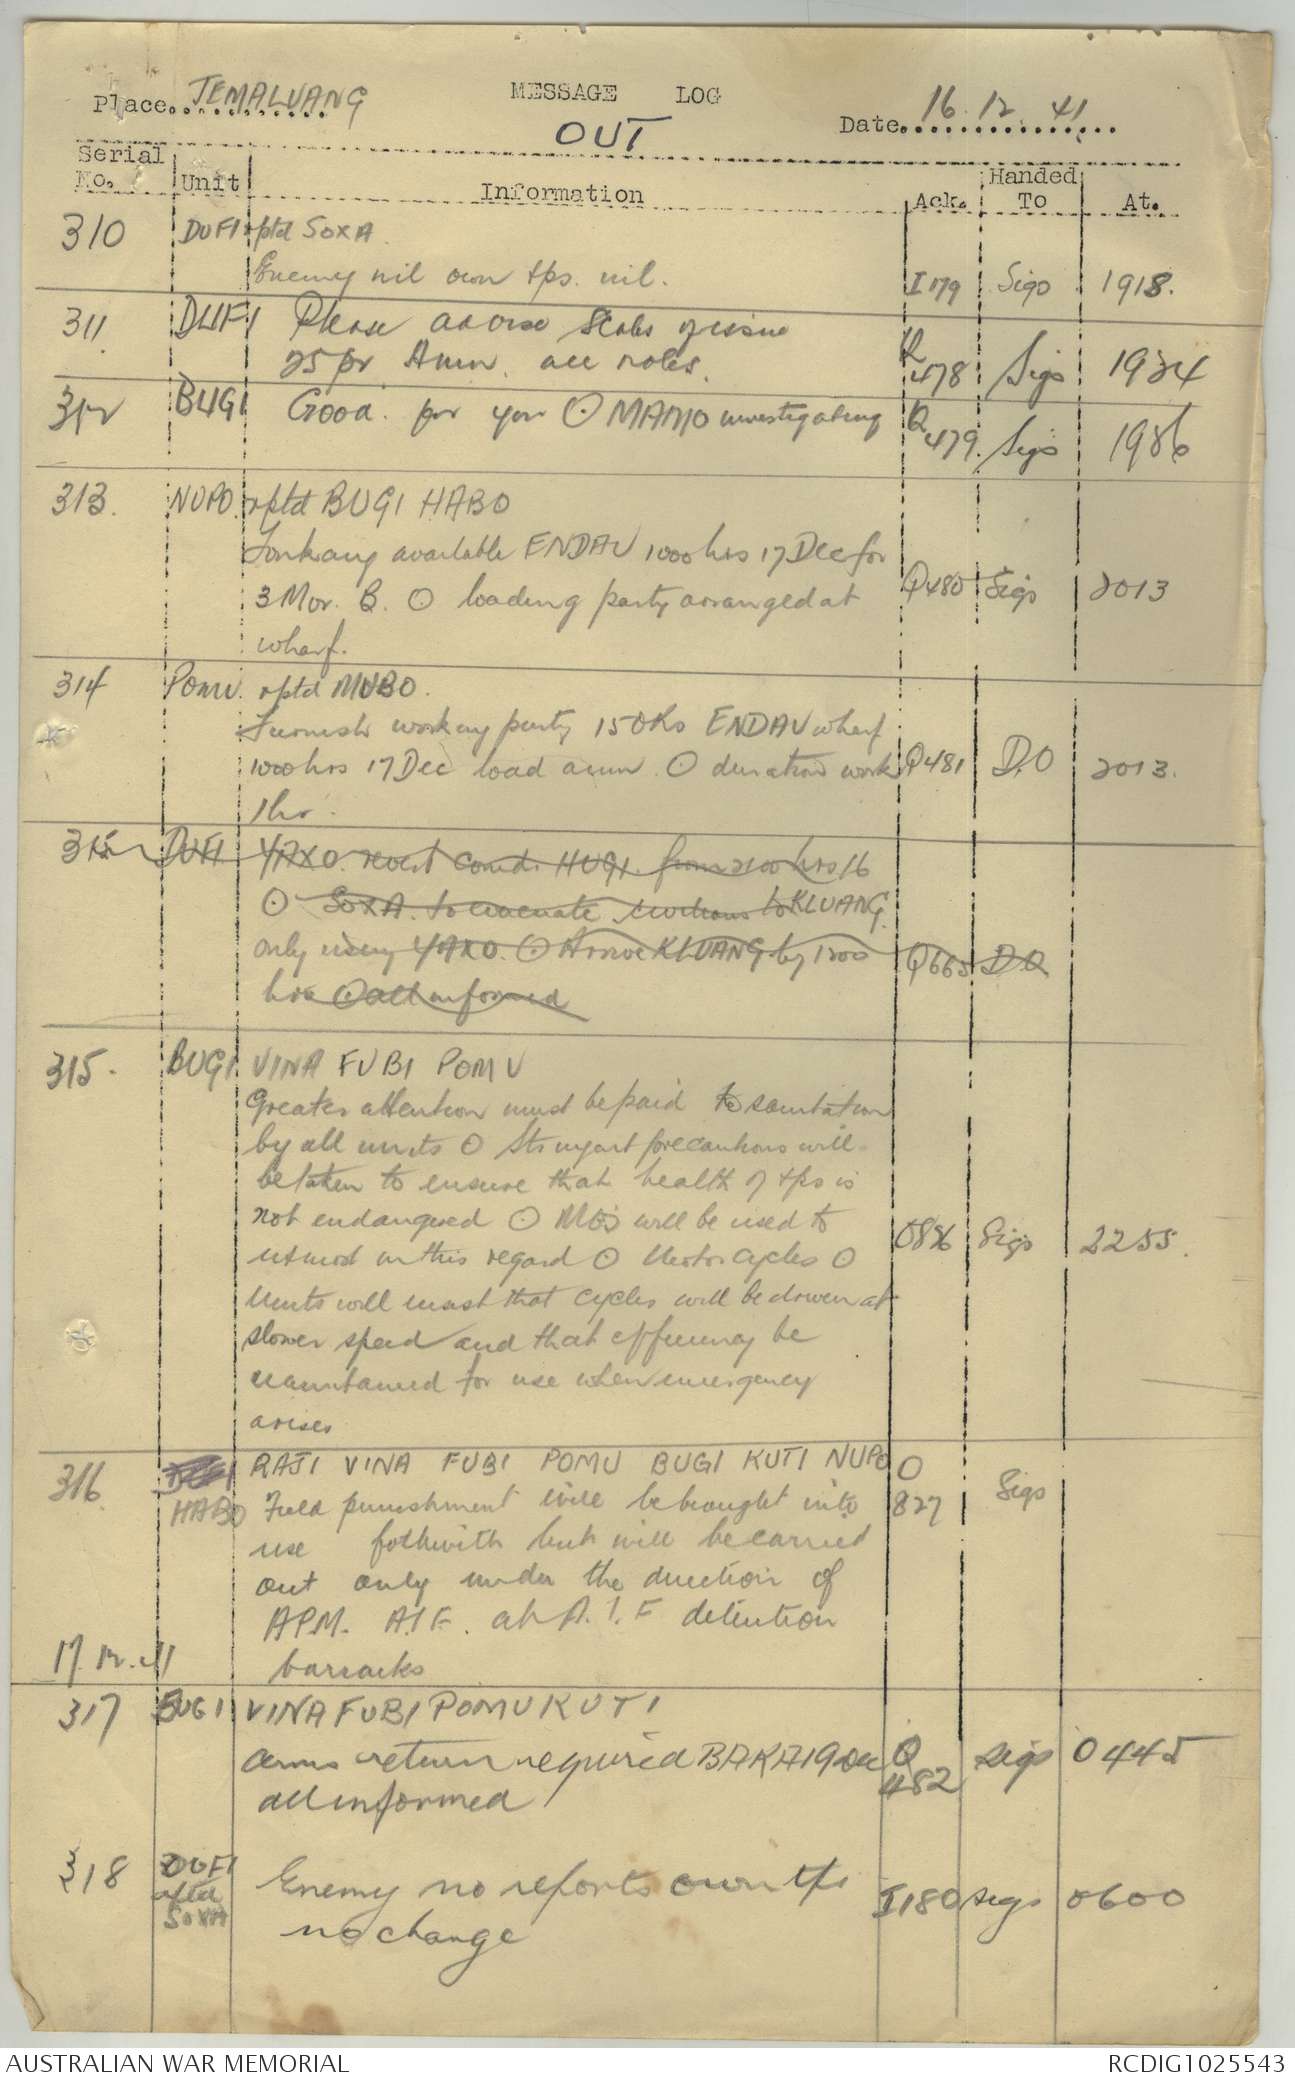 Place JEMALUANG MESSAGE LOG Date 16.12.41
OUT
Serial No. Unit Information Ack. Handed To At.
310 DUFI rptd SOXA
Enemy nil own tps. nil. I 179 Sigs 1918.
311 DUFI Please advise Scales of issue
25 pr Amn. all roles. Q 478 Sigs 1934
312 BUGI Good for you ⊙ MAMO investigating Q 479. Sigs 1936
313. NUPO. rptd BUGI HABO
Tonkang available ENDAU 1000 hrs 17 Dec for
3 Mor. B. ⊙ loading party arranged at Q480 Sigs 2013
wharf.
314 POMU. rptd MUBO.
Furnish working party 15 ORs ENDAU wharf
1000 hrs 17 Dec load amn. ⊙ duration work Q481 D.O 2013.
1 hr.
315 DUFI YAXO. revert Comd. HUGI. from 2100 hrs 16
⊙ SOXA. to evacuate to KLUANG.
only using YAXO. ⊙ Arrive KLUANG by 1200 Q665 D.O
hrs ⊙ all informed
315. BUGI. VINA FUBI POMU
Greater attention must be paid to sanitation
by all units ⊙ Stringent precautions will
be taken to ensure that health of tps is
not endangered ⊙ MOs will be used to O826 Sigs 2255.
utmost in this regard ⊙ Motor cycles ⊙
Units will insist that cycles will be driven at
slower speed and that efficiency be
maintained for use when emergency
arises
316. DUFI RAJI VINA FUBI POMU BUGI KUTI NUPO O
HABO Field punishment will be brought into 827 Sigs
use forthwith but will be carried
out only under the direction of
APM. AIF. at A.I.F. detention
17.12.41 barracks
317 BUGI VINA FUBI POMU KUTI
arms return required BAKA 19 Dec Q 482 Sigs 0445
all informed
318 DUFI rptd SOXA Enemy no reports own tps I180 Sigs 0600
no change
AUSTRALIAN WAR MEMORIAL RCDIG1025543